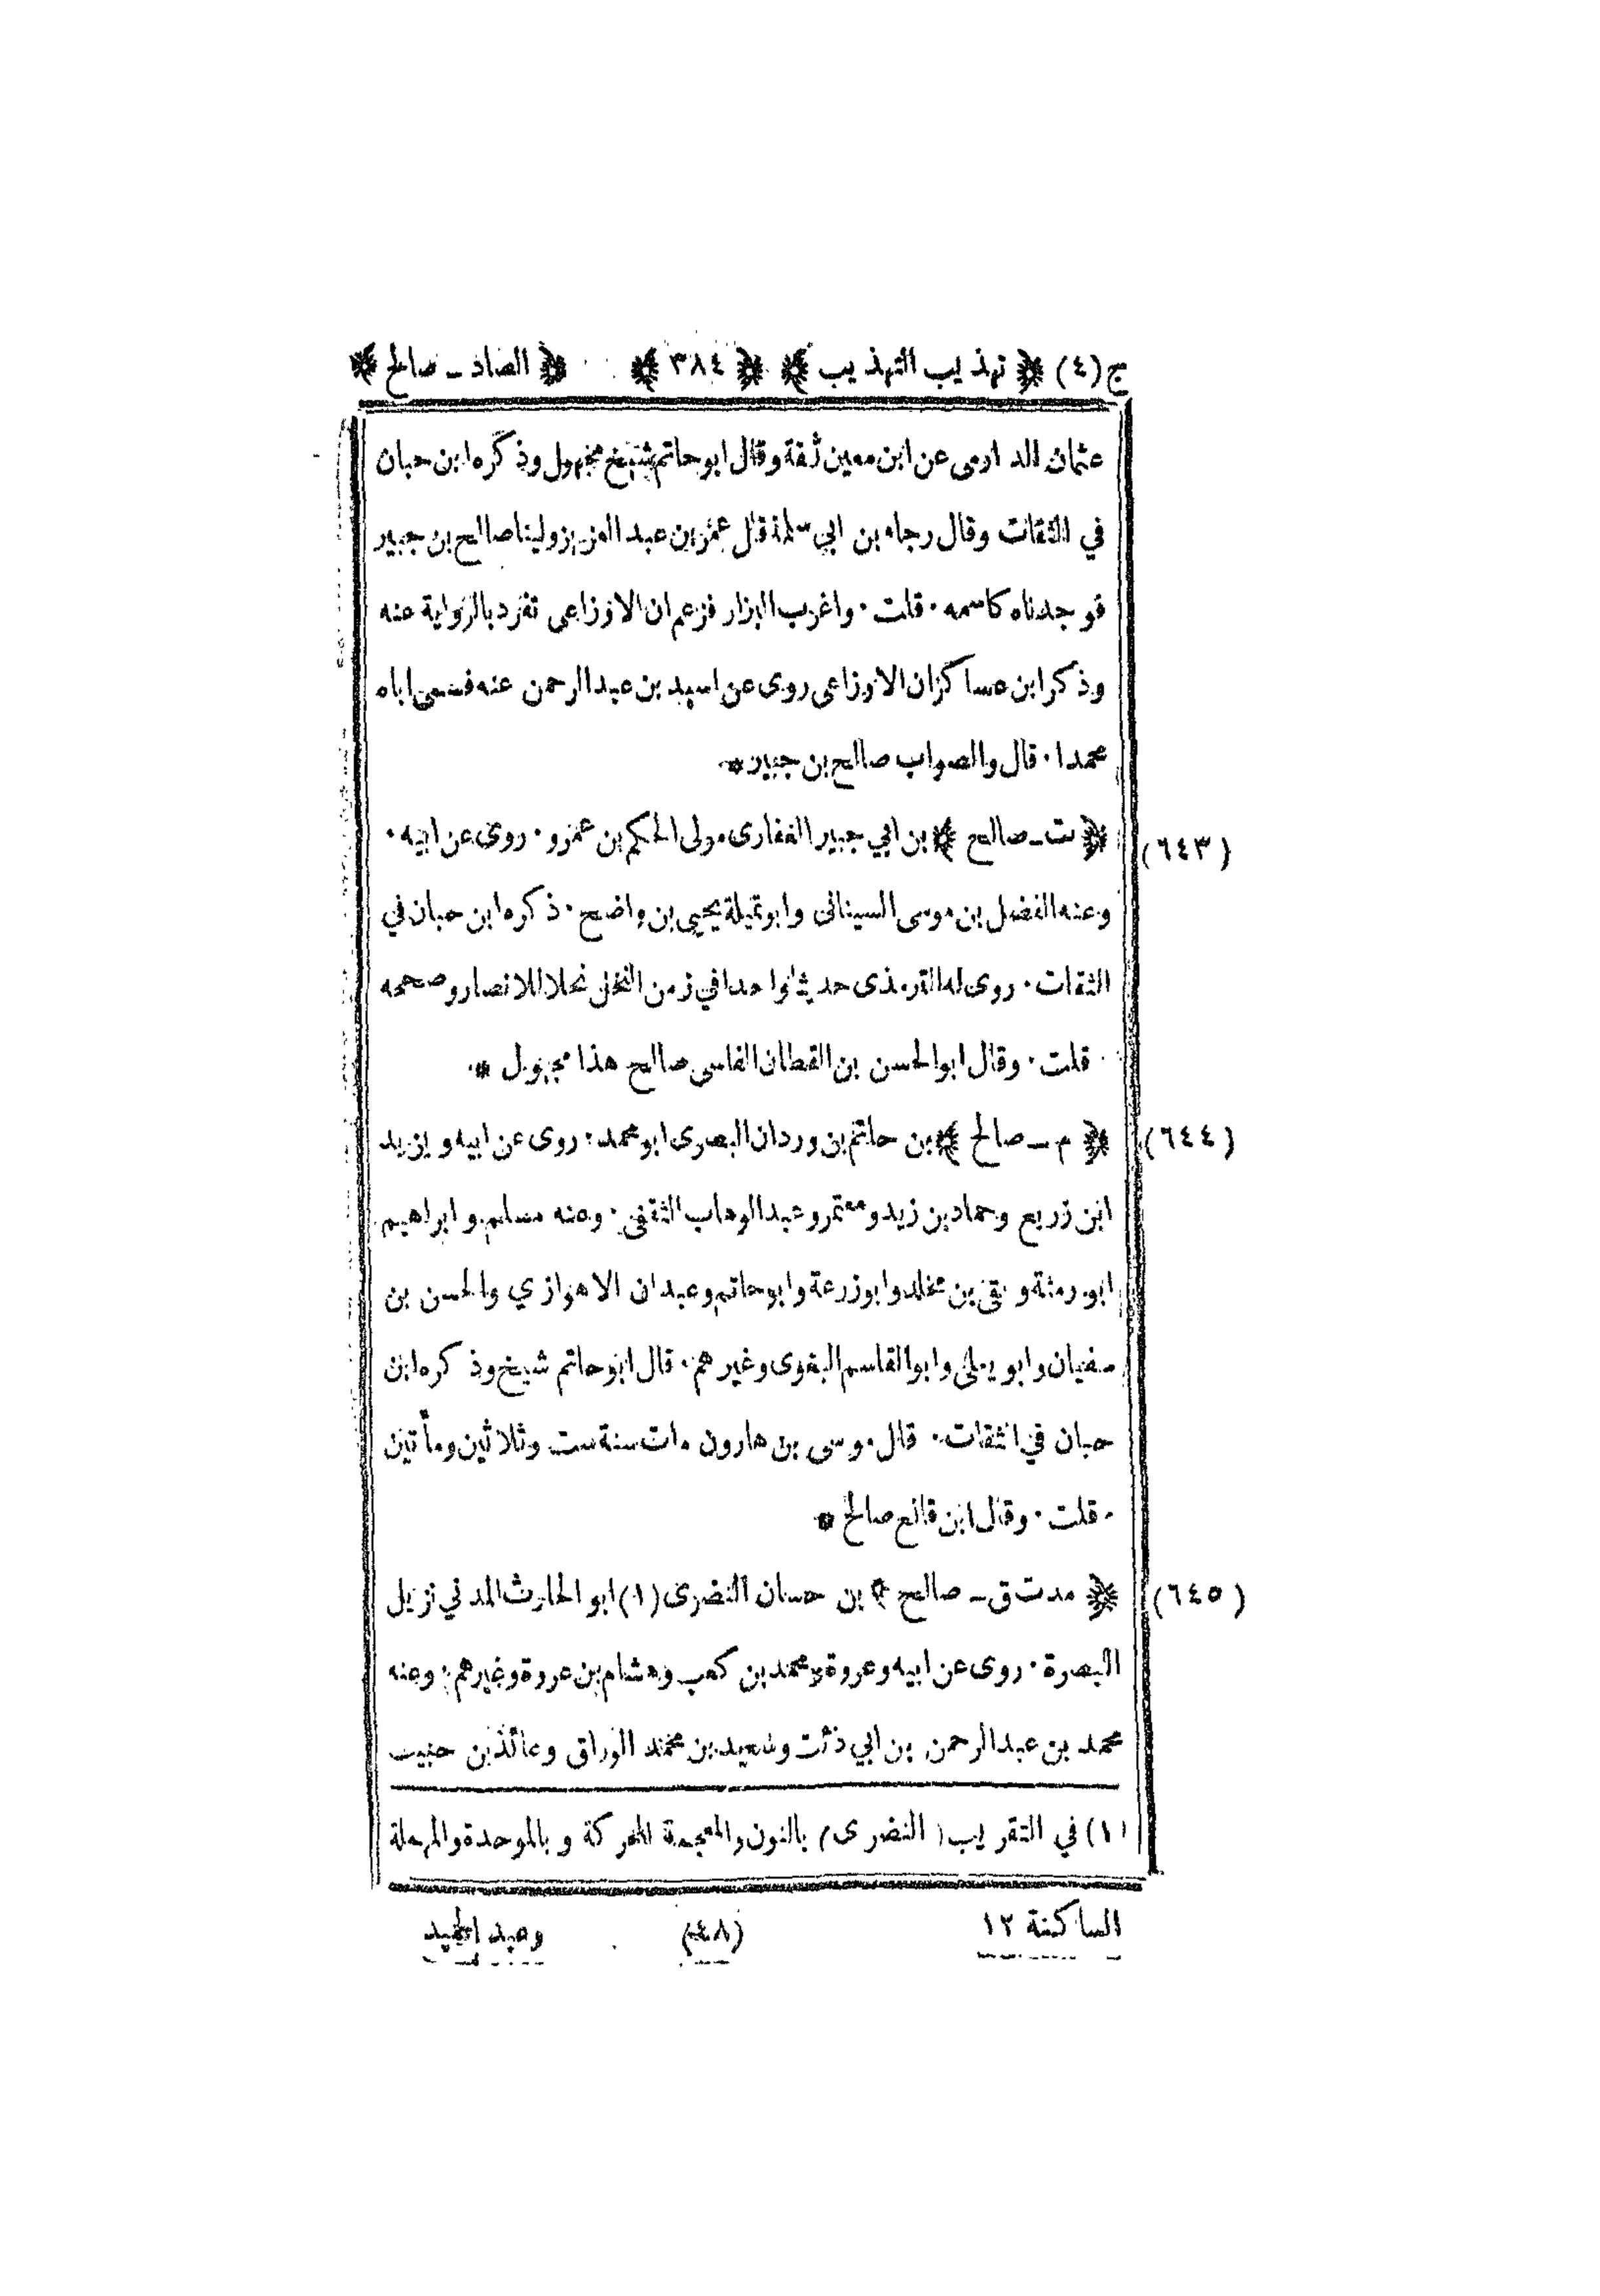 ج (٤) ﴿ تهذيب التهذيب ﴾ ﴿ ٣٨٤ ﴾ ﴿ الصاد ـ صالح ﴾
عثمان الدارمى عن ابن معين ثقة وقال ابو حاتم شيخ مجهول وذكره ابن حبان
في الثقات وقال رجاء بن ابي سلمة قال عمر بن عبد العزيز ولينا صالح بن جبير
فوجدناه كاسمه ٠ قلت ٠ واغرب البزار فزعم ان الاوزاعى تفرد بالرواية عنه
وذكر ابن عساكر ان الاوزاعى روى عن اسيد بن عبد الرحمن عنه فسمى اباه
محمدا ٠ قال والصواب صالح بن جبير *
(٦٤٣) ﴿ ت ـ صالح ﴾ بن ابي جبير الغفارى مولى الحكم بن عمرو ٠ روى عن ابيه ٠
وعنه الفضل بن موسى السينانى وابو تميلة يحيى بن واضح ٠ ذكره ابن حبان في
الثقات ٠ روى له الترمذى حديثا واحدا في زمن النخل نخلا للانصار وصححه
قلت ٠ وقال ابو الحسن بن القطان الفاسى صالح هذا مجهول *
(٦٤٤) ﴿ م ـ صالح ﴾ بن حاتم بن وردان البصرى ابو محمد ٠ روى عن ابيه ويزيد
ابن زريع وحماد بن زيد ومعتمر وعبد الوهاب الثقفى ٠ وعنه مسلم وابراهيم
ابو رمثة وبقى بن مخلد وابو زرعة وابو حاتم وعبدان الاهوازي والحسن بن
سفيان وابو يعلى وابو القاسم البغوى وغيرهم ٠ قال ابو حاتم شيخ وذكره ابن
حبان في الثقات ٠ قال موسى بن هارون مات سنة ست وثلاثين ومأتين
٠ قلت ٠ وقال ابن قانع صالح *
(٦٤٥) ﴿ مدت ق ـ صالح ﴾ بن حسان النضرى (١) ابو الحارث المدني نزيل
البصرة ٠ روى عن ابيه وعروة ومحمد بن كعب وهشام بن عروة وغيرهم ٠ وعنه
محمد بن عبد الرحمن بن ابي ذئب وسعيد بن محمد الوراق وعائذ بن حبيب
(١) في التقريب (النضرى) بالنون والمعجمة المحركة وبالموحدة والمهملة
الساكنة ١٢ (٤٨) وعبد الحميد